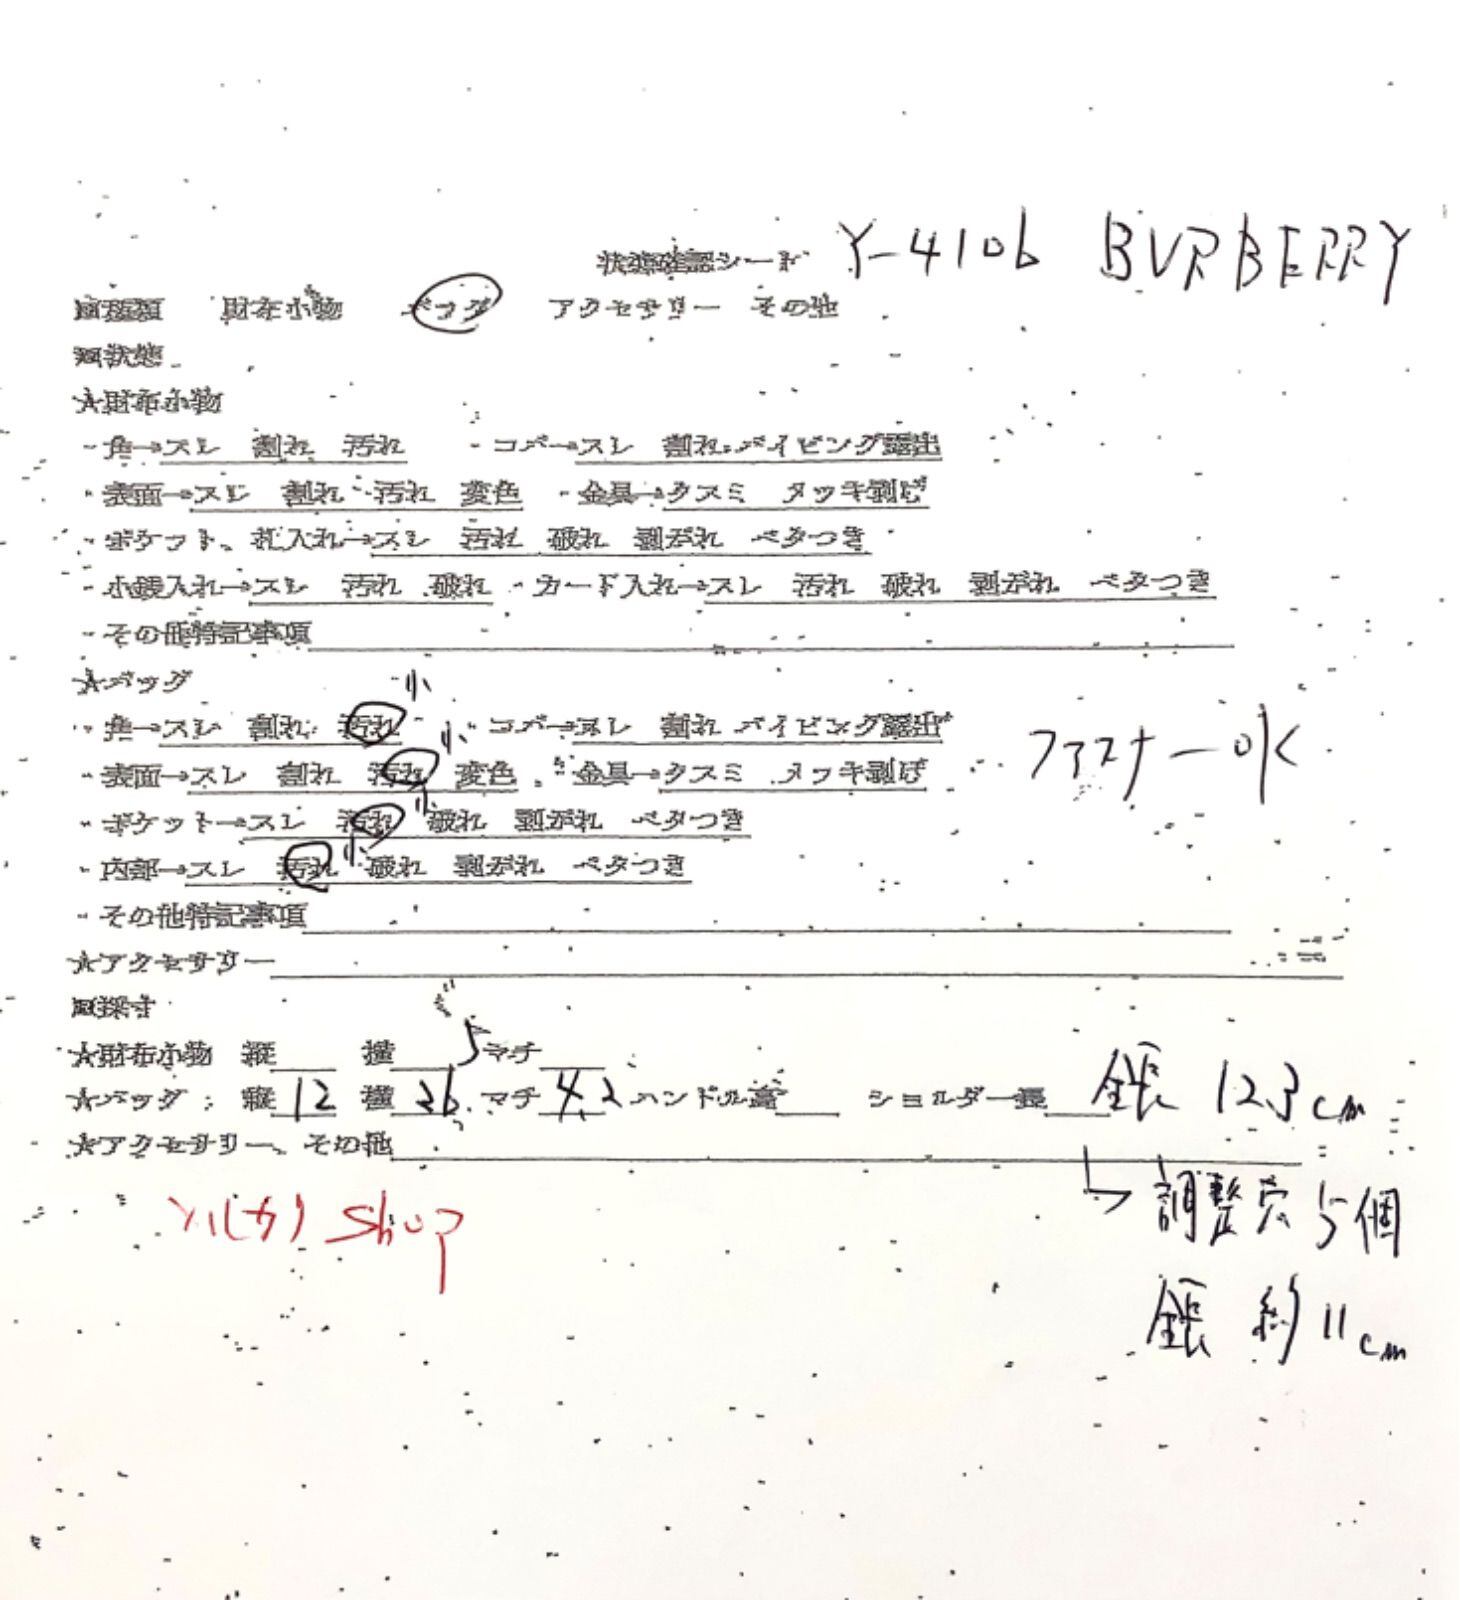 状態確認シート Y-4106 BURBERRY
■種類 財布小物 バッグ アクセサリー その他
■状態
★財布小物
・角→スレ 割れ 汚れ ・コバ→スレ 割れ パイピング露出
・表面→スレ 割れ 汚れ 変色 ・金具→クスミ メッキ剥げ
・ポケット、札入れ→スレ 汚れ 破れ 剥がれ ベタつき
・小銭入れ→スレ 汚れ 破れ ・カード入れ→スレ 汚れ 破れ 剥がれ ベタつき
・その他特記事項
★バッグ 小
・角→スレ 割れ 汚れ 小 コバ→スレ 割れ パイピング露出
・表面→スレ 割れ 汚れ 変色 ・金具→クスミ メッキ剥げ ファスナーOK
・ポケット→スレ 汚れ 小 破れ 剥がれ ベタつき
・内部→スレ 汚れ 小 破れ 剥がれ ベタつき
・その他特記事項
★アクセサリー
■採寸
★財布小物 縦 横 マチ
★バッグ: 縦 12 横 26.5 マチ 4.2 ハンドル高 ショルダー長 全長 123cm
★アクセサリー、その他
↳ 調整穴 5個
Shop
全長 約11cm